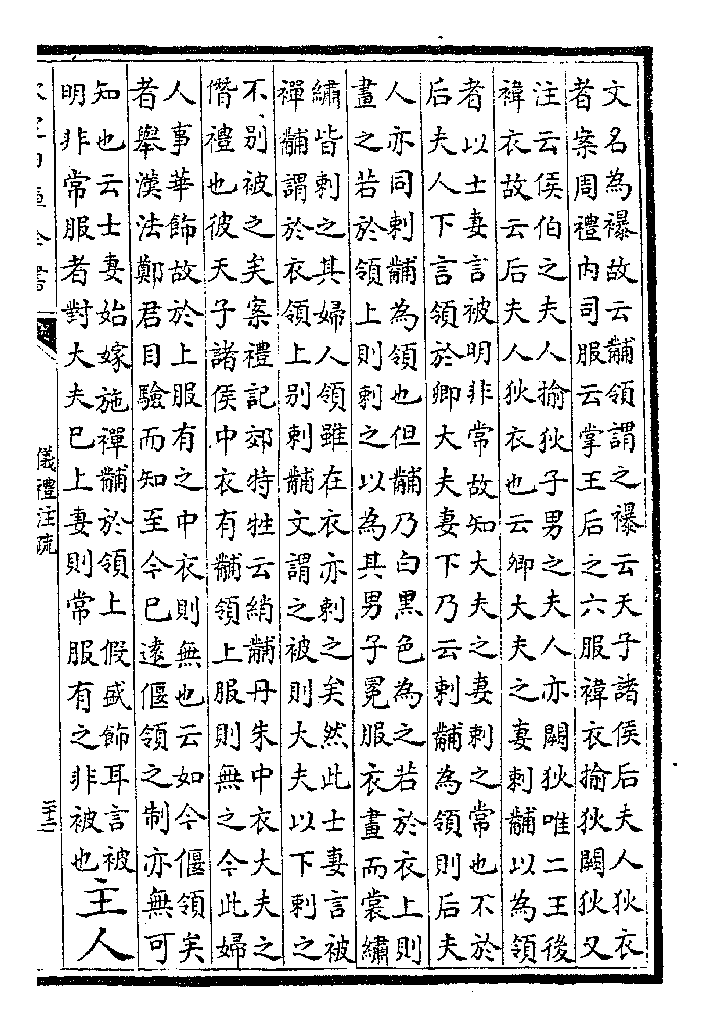 文名為襮故云黼領謂之襮云天子諸侯后夫人狄衣
者案周禮内司服云掌王后之六服褘衣揄狄闕狄又
注云侯伯之夫人揄狄子男之夫人亦闕狄唯二王後
褘衣故云后夫人狄衣也云卿大夫之妻刺黼以為領
者以士妻言被明非常故知大夫之妻刺之常也不於
后夫人下言領於卿大夫妻下乃云刺黼為領則后夫
人亦同刺黼為領也但黼乃白黒色為之若於衣上則
畫之若於領上則刺之以為其男子冕服衣畫而裳繡
繡皆刺之其婦人領雖在衣亦刺之矣然此士妻言被
襌黼謂於衣領上别刺黼文謂之被則大夫以下刺之
不别被之矣案禮記郊特牲云綃黼丹朱中衣大夫之
僭禮也彼天子諸侯中衣有黼領上服則無之今此婦
人事華飾故於上服有之中衣則無也云如今偃領矣
者舉漢法鄭君目驗而知至今已逺偃領之制亦無可
知也云士妻始嫁施襌黼於領上假盛飾耳言被
明非常服者對大夫已上妻則常服有之非被也
主人
儀禮注疏